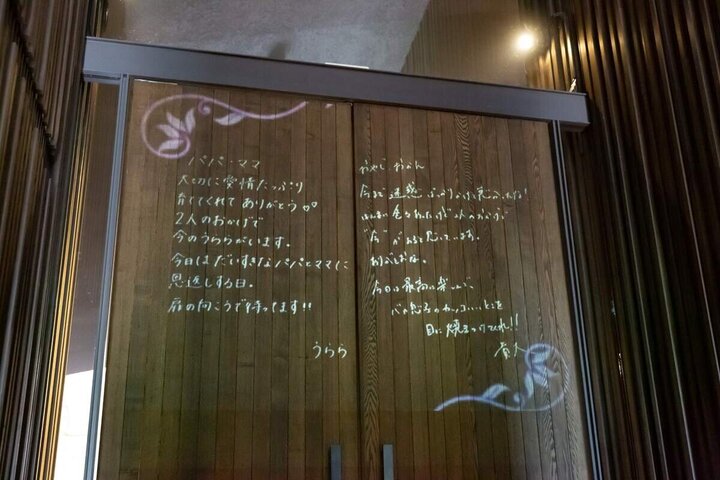 パパ・ママ
大切に愛情たっぷり
育ててくれてありがとう
2人のおかげで
今のうららがいます。
今日はだいすきなパパとママに
恩返しする日。
扉の向こうで待ってます!!
うらら
おやじ おかん
今まで迷惑ばっかりかけて
"今"があると思っています。
ありがとな。
今日は最高の
バカ息子のカッコ
目に焼きつけてくれ!!